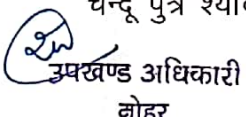 चन्दू पुत्र
उपखण्ड अधिकारी
नोहर